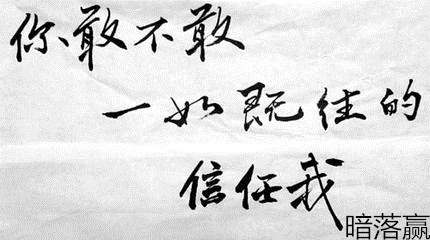 你敢不敢
一如既往的
信任我
暗落赢